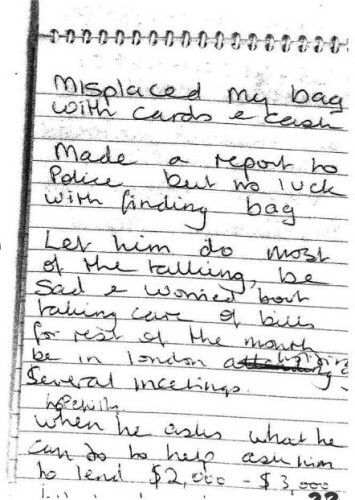 Misplaced my bag
with cards e cash
Made a report to
Police but no luck
with finding bag
Let him do most
of the talking, be
Sad e worried bout
taking care of bills
for rest of the month
be in london
Several meetings.
hopefully
when he asks what he
can do to help ask him
to lend $2,000 - $3,000